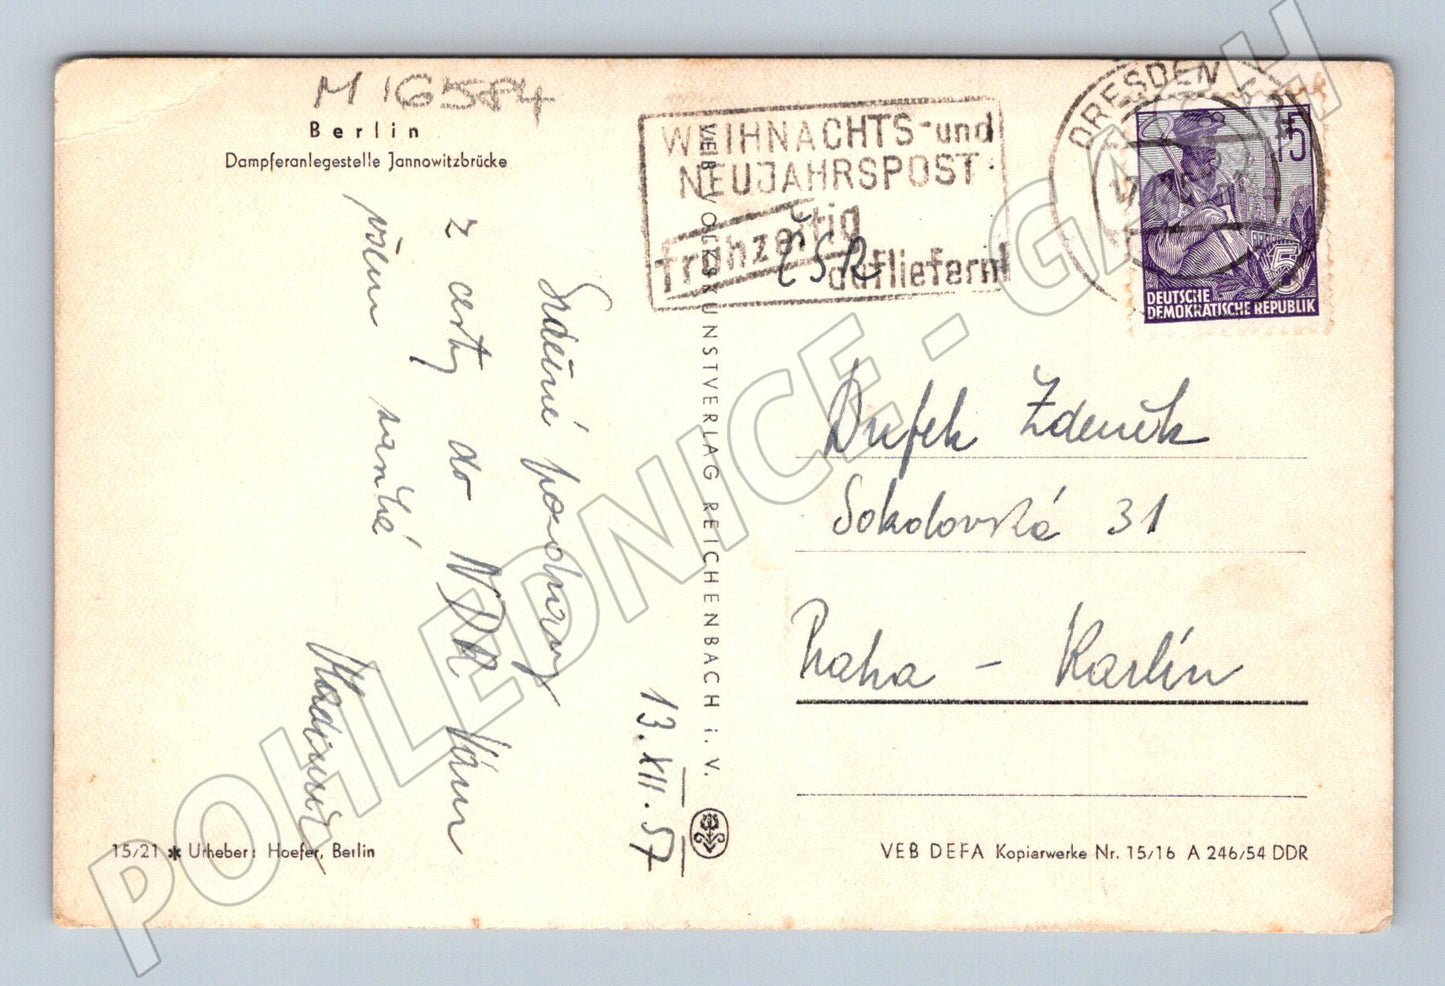 M 16584
Berlin
Dampferanlegestelle Jannowitzbrücke
13. XII. 57
Srdečné pozdravy
z cesty do NDR Vám
všem
Vladimír
15/21 * Urheber: Hoefer, Berlin
VEB VOLKSKUNSTVERLAG REICHENBACH i. V.
WEIHNACHTS- und
NEUJAHRSPOST
frühzeitig
aufliefern!
ČSR
DRESDEN
15
DEUTSCHE
DEMOKRATISCHE REPUBLIK
Dufek Zdeněk
Sokolovská 31
Praha - Karlín
VEB DEFA Kopierwerke Nr. 15/16 A 246/54 DDR
POHLEDNICE - GALCH